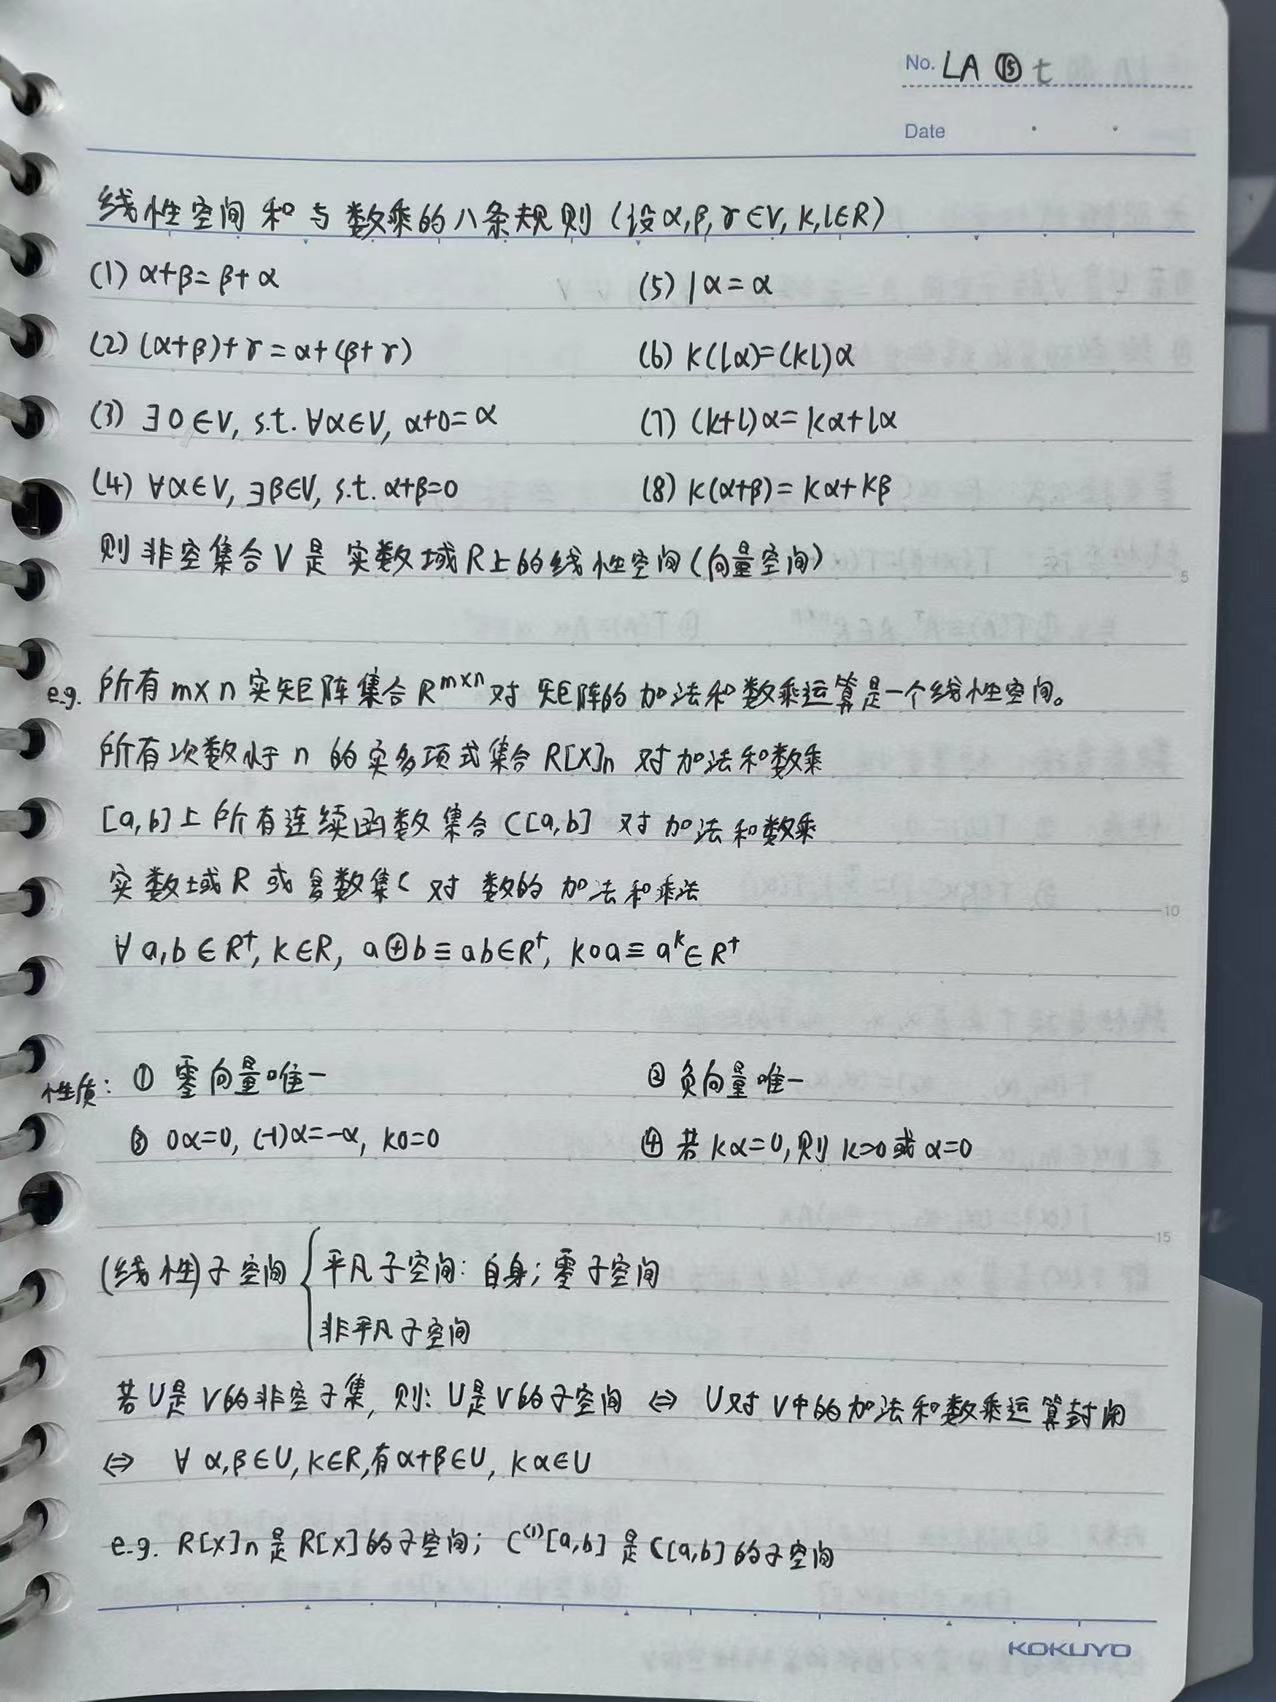 No. LA ⑮ t
Date
线性空间和与数乘的八条规则(设α,β,γ∈V, k,l∈R)
(1) α+β=β+α
(5) 1α=α
(2) (α+β)+γ=α+(β+γ)
(6) k(lα)=(kl)α
(3) ∃0∈V, s.t. ∀α∈V, α+0=α
(7) (k+l)α=kα+lα
(4) ∀α∈V, ∃β∈V, s.t. α+β=0
(8) k(α+β)=kα+kβ
则非空集合V是实数域R上的线性空间(向量空间)
5
e.g. 所有m×n实矩阵集合R^{m×n}对矩阵的加法和数乘运算是一个线性空间。
所有次数小于n的实多项式集合R[x]n对加法和数乘
[a,b]上所有连续函数集合C[a,b]对加法和数乘
实数域R或复数集C对数的加法和乘法
10
∀a,b∈R⁺, k∈R, a⊕b≡ab∈R⁺, k∘a≡a^k∈R⁺
性质: ① 零向量唯一
② 负向量唯一
③ 0α=0, (-1)α=-α, k0=0
④ 若kα=0,则k=0或α=0
15
(线性)子空间{平凡子空间: 自身; 零子空间
非平凡子空间
若U是V的非空子集, 则: U是V的子空间 ⇔ U对V中的加法和数乘运算封闭
⇔ ∀α,β∈U, k∈R,有α+β∈U, kα∈U
e.g. R[x]n是R[x]的子空间; C⁽¹⁾[a,b]是C[a,b]的子空间
KOKUYO